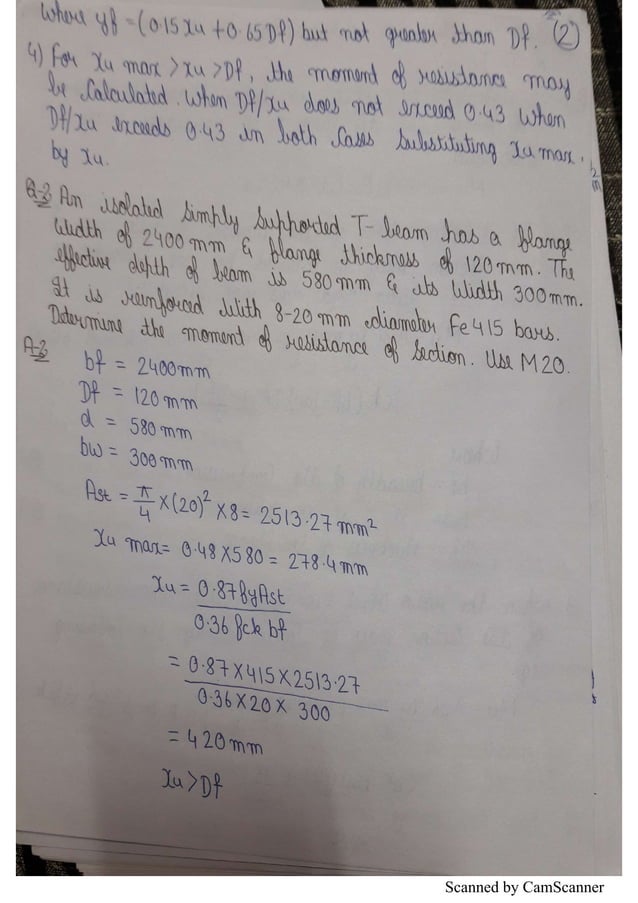 where yf = (0.15 xu + 0.65 Df) but not greater than Df. (2)
4) For xu max > xu > Df, the moment of resistance may
be Calculated. When Df/xu does not exceed 0.43 When
Df/xu exceeds 0.43 in both Cases Substituting xu max.
by xu.
Q-3 An isolated Simply Supported T-beam has a flange
Width of 2400 mm & flange thickness of 120 mm. The
effective depth of beam is 580 mm & its Width 300 mm.
It is reinforced With 8-20 mm diameter Fe 415 bars.
Determine the moment of resistance of Section. Use M20.
A-3
bf = 2400 mm
Df = 120 mm
d = 580 mm
bw = 300 mm
Ast = π/4 × (20)² × 8 = 2513.27 mm²
Xu max = 0.48 × 580 = 278.4 mm
Xu = 0.87 fy Ast
0.36 fck bf
= 0.87 × 415 × 2513.27
0.36 × 20 × 300
= 420 mm
Xu > Df
Scanned by CamScanner